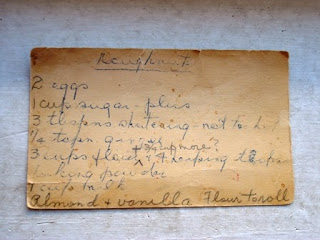 Doughnuts
2 eggs
1 cup sugar - plus
3 tbspns shortening - not to hot
½ tspn
3 cups flour + ¾ cup more? & 4 heaping tspns
baking powder
1 cup milk
Almond & vanilla Flour to roll